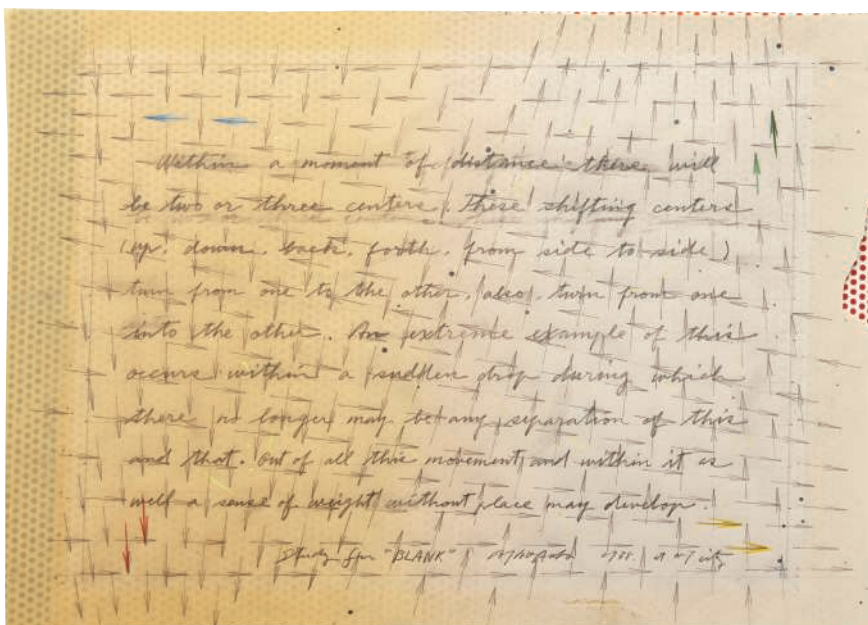 Within a moment of distance there will
be two or three centers. These shifting centers
(up. down. back. forth. from side to side)
turn from one to the other, also, turn from one
into the other. An extreme example of this
occurs within a sudden drop during which
there no longer may be any separation of this
and that. Out of all this movement and within it as
well a sense of weight without place may develop.
Study for "BLANK"